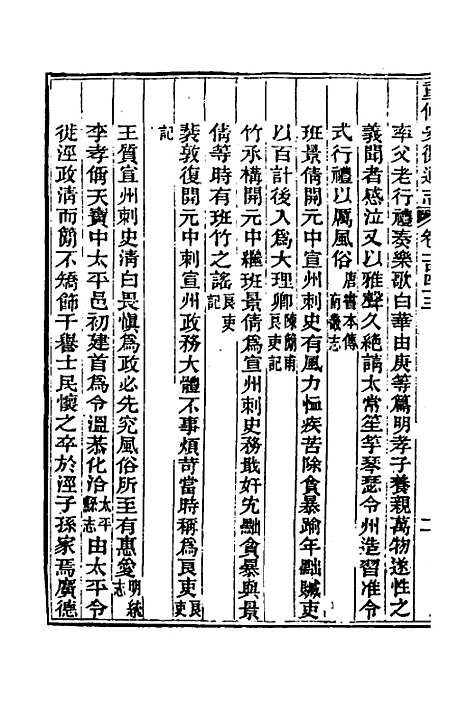 重修安徽通志 卷一百四十三 二
率父老行禮奏樂歌白華由庚等篇明孝子養親萬物遂性之
義聞者感泣又以雅聲久絕請太常笙竽琴瑟令州造習准令
式行禮以厲風俗唐書本傳南畿志
班景倩開元中宣州刺史有風力恤疾苦除貪暴踰年黜贓吏
以百計後入為大理卿陳簡甫良吏記
竹承構開元中繼班景倩為宣州刺史務敢奸宄黜貪暴與景
倩等時有班竹之謠良吏記
裴敦復開元中刺宣州政務大體不事煩苛當時稱為良吏良吏
記
王質宣州刺史清白畏慎為政必先究風俗所至有惠愛明統志
李孝侕天寶中太平邑初建首為令溫恭化洽太平縣志由太平令
徙涇政清而簡不矯飾干譽士民懷之卒於涇子孫家焉廣德